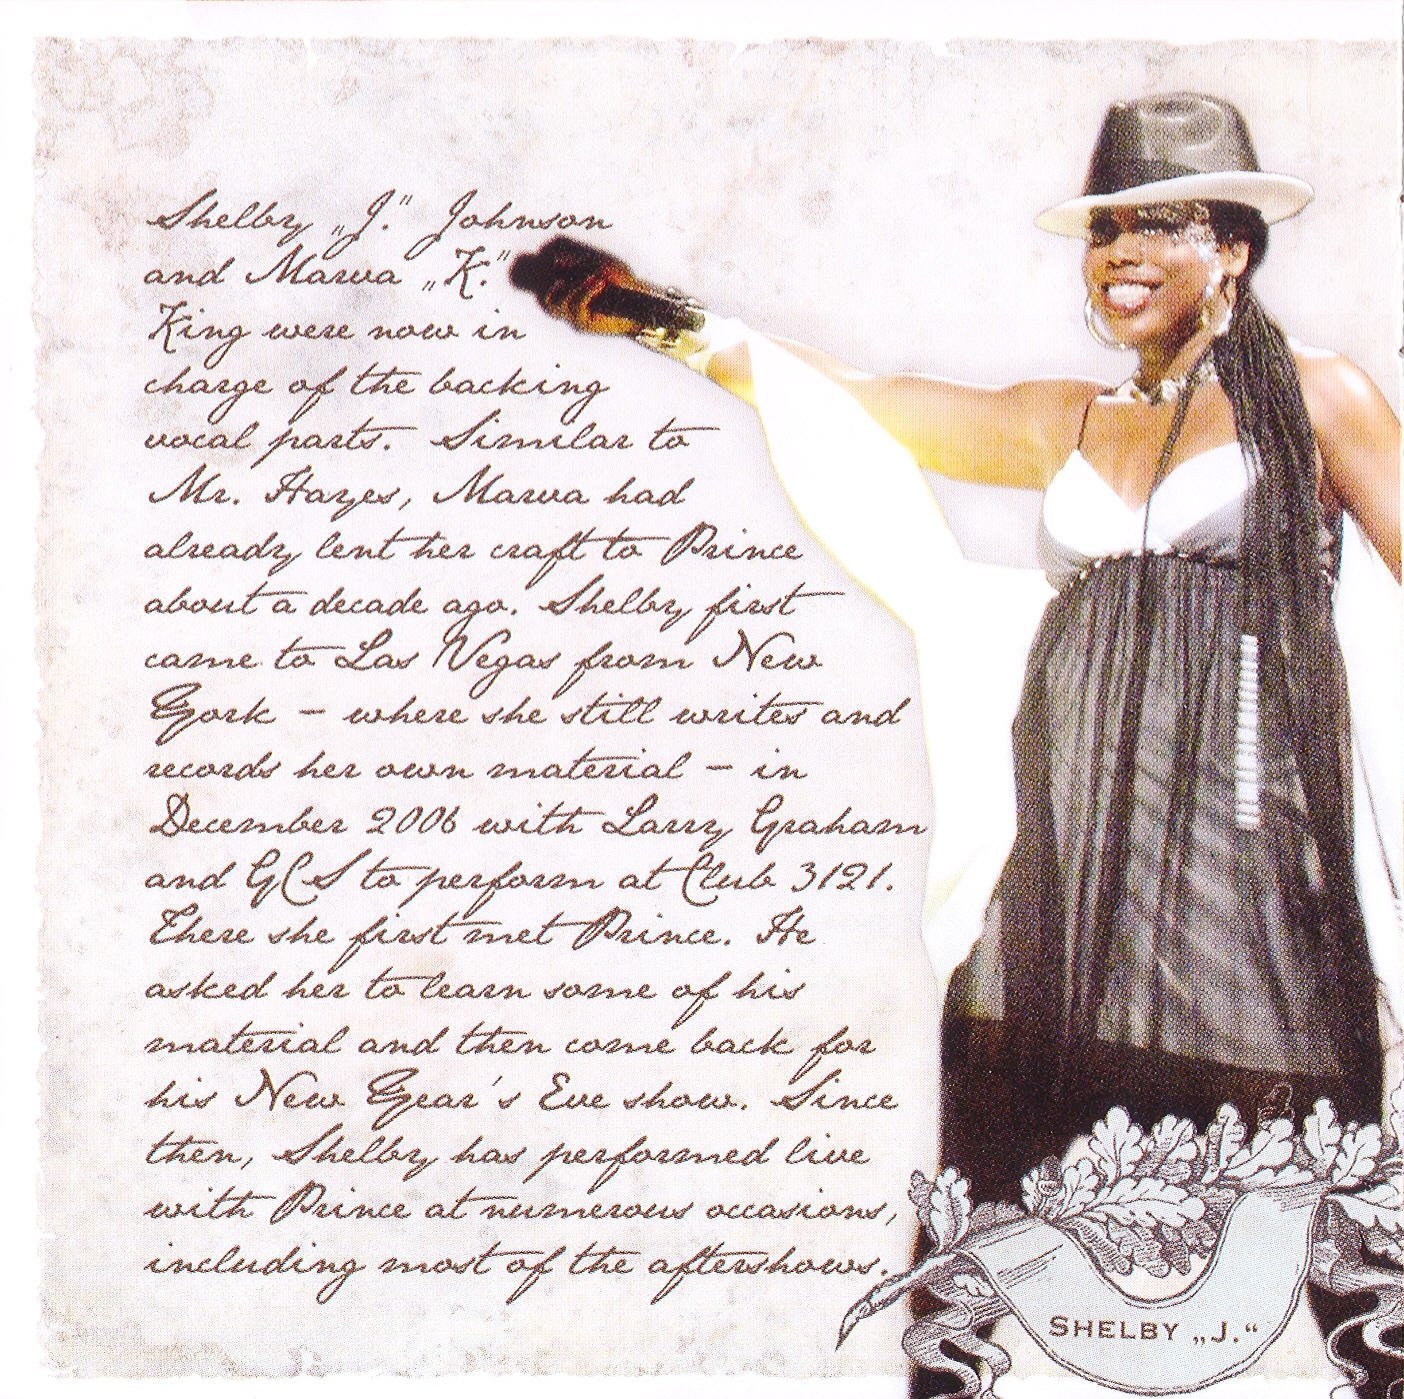 Shelby „J.” Johnson
and Marva „K.”
King were now in
charge of the backing
vocal parts. Similar to
Mr. Hayes, Marva had
already lent her craft to Prince
about a decade ago. Shelby first
came to Las Vegas from New
York – where she still writes and
records her own material – in
December 2006 with Larry Graham
and GCS to perform at Club 3121.
There she first met Prince. He
asked her to learn some of his
material and then come back for
his New Year's Eve show. Since
then, Shelby has performed live
with Prince at numerous occasions,
including most of the aftershows.
SHELBY „J.“